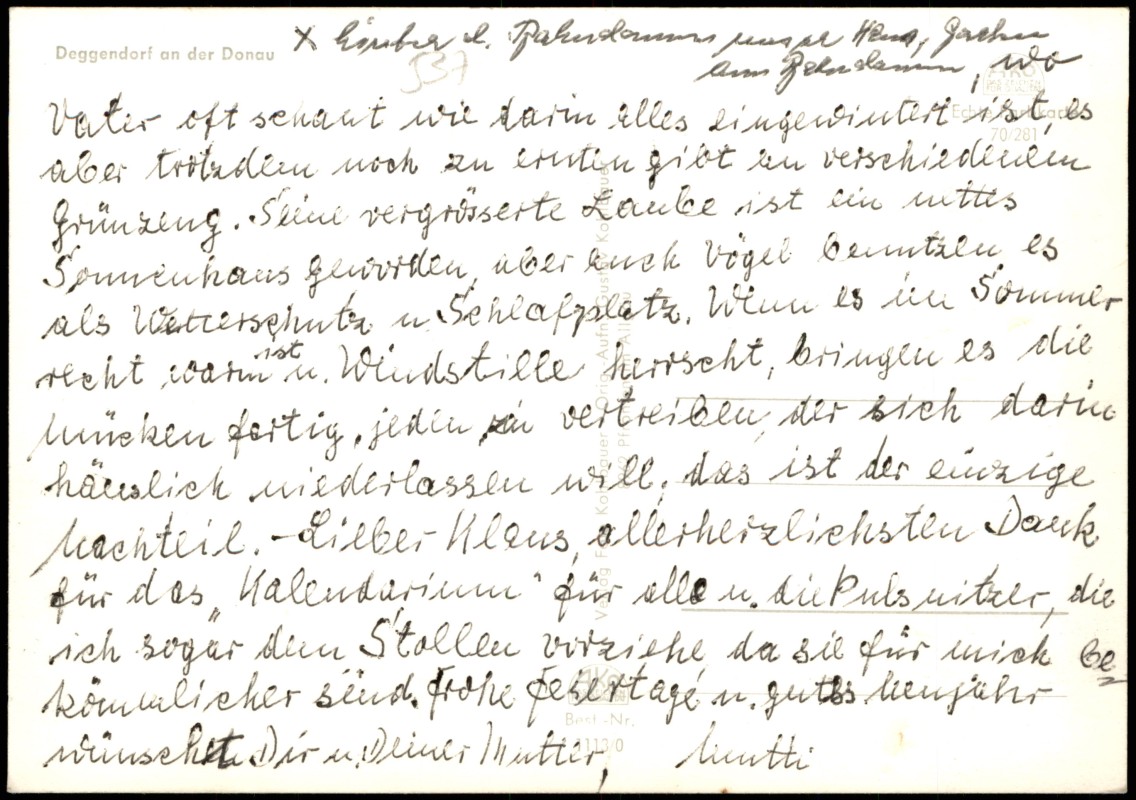 Deggendorf an der Donau
x d. Bahndamm unser Haus, Garten
am Bahndamm, wo
537
Vater oft schaut wie darin alles eingewintert ist, es
70/281
aber trotzdem noch zu ernten gibt an verschiedenem
Grünzeug. Seine vergrösserte Laube ist ein nettes
Sonnenhaus geworden, aber auch Vögel benutzen es
als Wetterschutz u. Schlafplatz. Wenn es im Sommer
recht warm ist u. Windstille herrscht, bringen es die
Mücken fertig, jeden zu vertreiben, der sich darin
häuslich niederlassen will, das ist der einzige
Nachteil. – Lieber Klaus, allerherzlichsten Dank
für das „Kalendarium" für alle u. die Pulsnitzer, die
ich sogar dem Stollen vorziehe, da sie für mich be
kömmlicher sind. Frohe Feiertage u. gutes Neujahr
Best.-Nr.
wünscht Dir u. Deiner Mutter, Mutti
2113/0